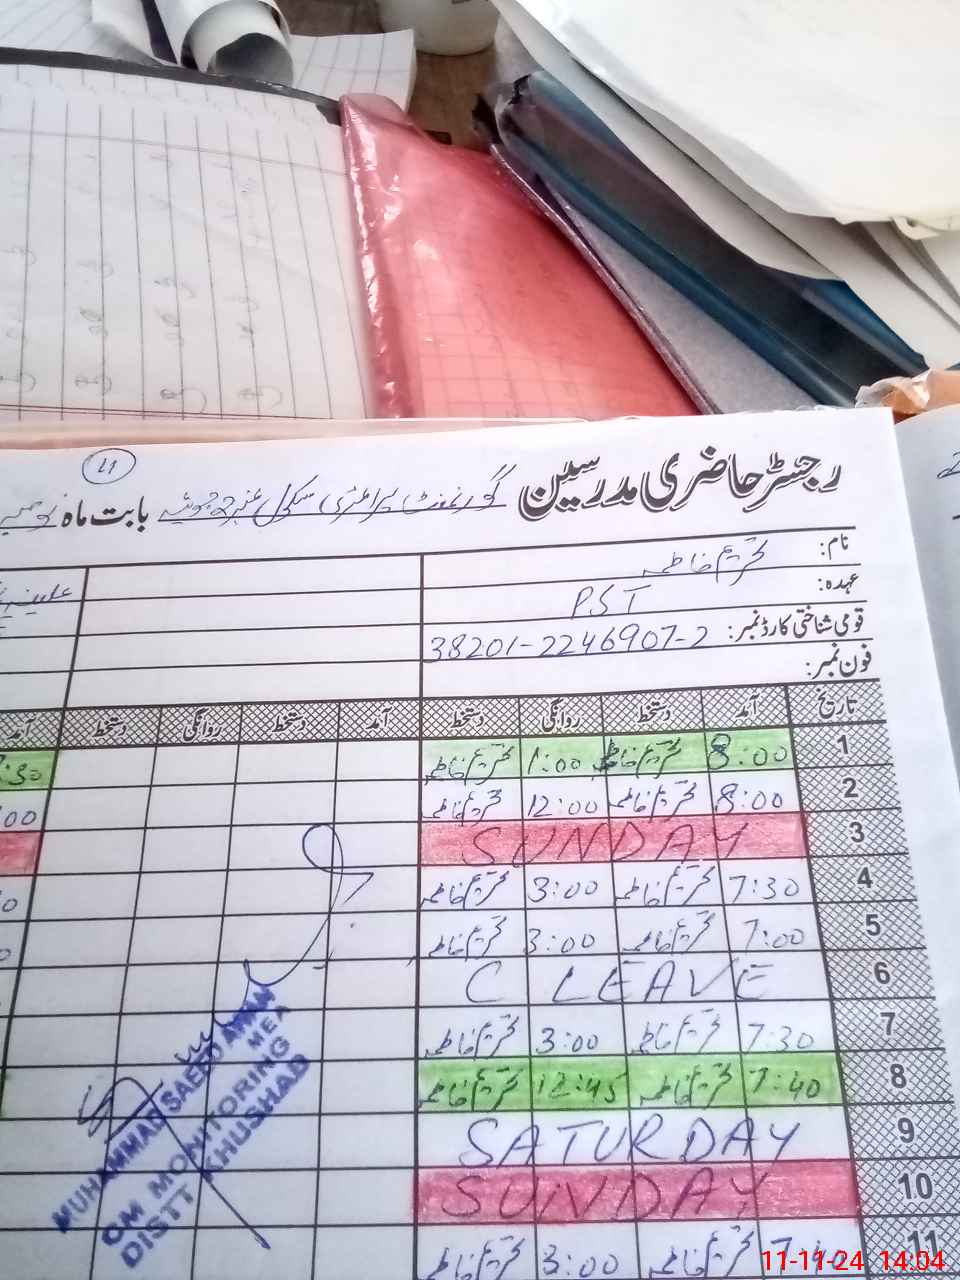 11
رجسٹر حاضری مدرسین گورنمنٹ پرائمری سکول بابت ماہ
نام:
عہدہ: PST
قومی شناختی کارڈ نمبر: 38201-2246907-2
فون نمبر:
تاریخ آمد دستخط روانگی دستخط آمد دستخط روانگی دستخط آمد
1 8:00 تحریم فاطمہ 1:00 تحریم فاطمہ
2 8:00 تحریم فاطمہ 12:00 تحریم فاطمہ
3 SUNDAY
4 7:30 تحریم فاطمہ 3:00 تحریم فاطمہ
5 7:00 تحریم فاطمہ 3:00 تحریم فاطمہ
6 C LEAVE
7 7:30 تحریم فاطمہ 3:00 تحریم فاطمہ
8 7:40 تحریم فاطمہ 12:45 تحریم فاطمہ
9 SATURDAY
10 SUNDAY
11 7:40 تحریم فاطمہ 3:00 تحریم فاطمہ
MUHAMMAD SAEED AWAN
MEA
CM MONITORING
DISTT KHUSHAB
11-11-24 14:04